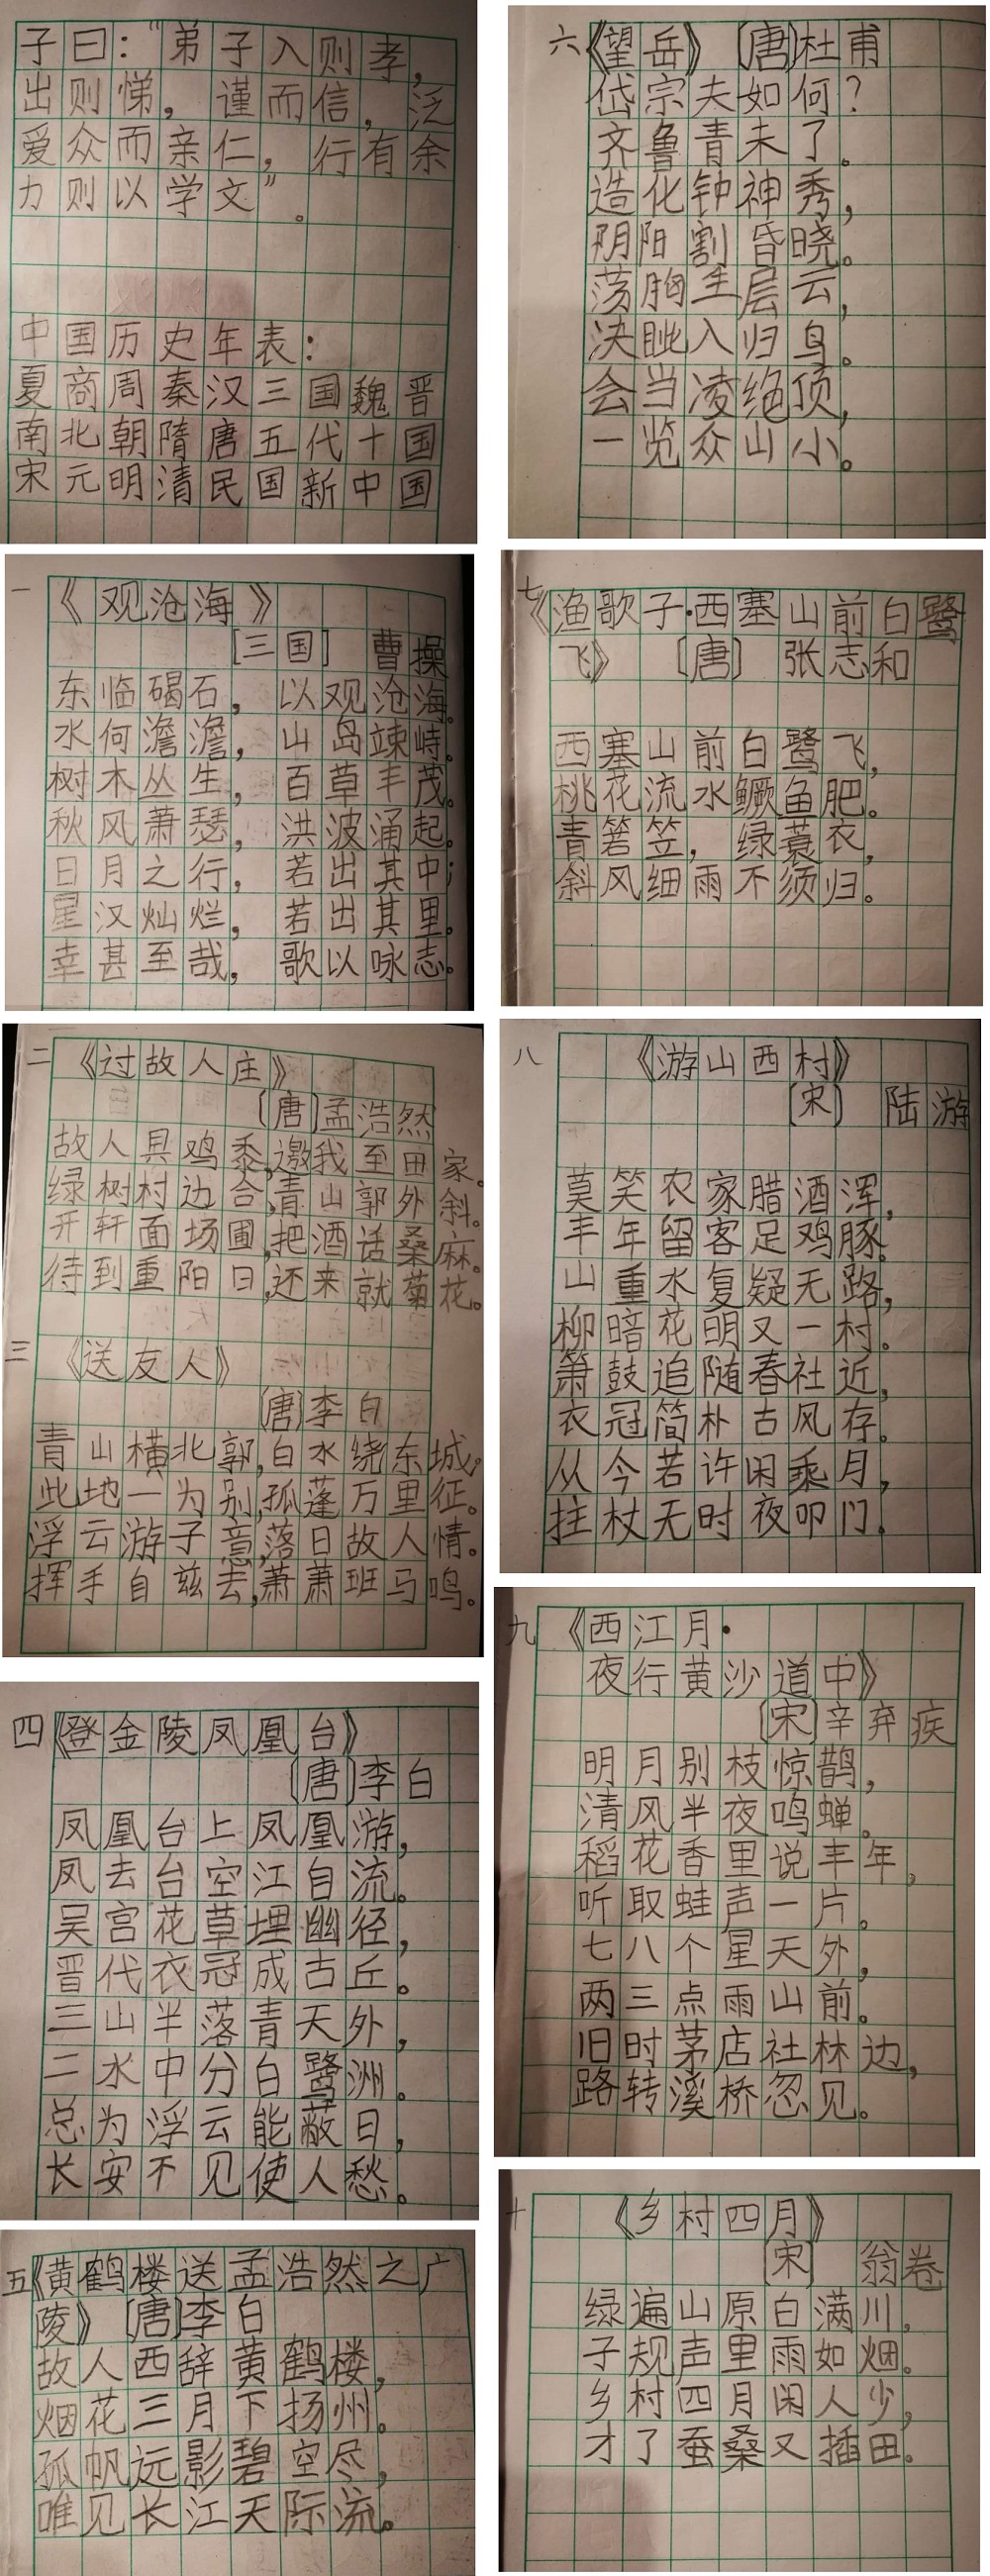 子曰：“弟子入则孝，
出则悌，谨而信，泛
爱众而亲仁，行有余
力则以学文”。
中国历史年表：
夏商周秦汉三国魏晋
南北朝隋唐五代十国
宋元明清民国新中国
一《观沧海》
[三国] 曹操
东临碣石，以观沧海。
水何澹澹，山岛竦峙。
树木丛生，百草丰茂。
秋风萧瑟，洪波涌起。
日月之行，若出其中；
星汉灿烂，若出其里。
幸甚至哉，歌以咏志。
二《过故人庄》
[唐]孟浩然
故人具鸡黍，邀我至田家。
绿树村边合，青山郭外斜。
开轩面场圃，把酒话桑麻。
待到重阳日，还来就菊花。
三《送友人》
[唐]李白
青山横北郭，白水绕东城。
此地一为别，孤蓬万里征。
浮云游子意，落日故人情。
挥手自兹去，萧萧班马鸣。
四《登金陵凤凰台》
[唐]李白
凤凰台上凤凰游，
凤去台空江自流。
吴宫花草埋幽径，
晋代衣冠成古丘。
三山半落青天外，
二水中分白鹭洲。
总为浮云能蔽日，
长安不见使人愁。
五《黄鹤楼送孟浩然之广
陵》[唐]李白
故人西辞黄鹤楼，
烟花三月下扬州。
孤帆远影碧空尽，
唯见长江天际流。
六《望岳》[唐]杜甫
岱宗夫如何？
齐鲁青未了。
造化钟神秀，
阴阳割昏晓。
荡胸生层云，
决眦入归鸟。
会当凌绝顶，
一览众山小。
七《渔歌子·西塞山前白鹭
飞》[唐] 张志和
西塞山前白鹭飞，
桃花流水鳜鱼肥。
青箬笠，绿蓑衣，
斜风细雨不须归。
八《游山西村》
[宋] 陆游
莫笑农家腊酒浑，
丰年留客足鸡豚。
山重水复疑无路，
柳暗花明又一村。
箫鼓追随春社近，
衣冠简朴古风存。
从今若许闲乘月，
拄杖无时夜叩门。
九《西江月·
夜行黄沙道中》
[宋]辛弃疾
明月别枝惊鹊，
清风半夜鸣蝉。
稻花香里说丰年，
听取蛙声一片。
七八个星天外，
两三点雨山前。
旧时茅店社林边，
路转溪桥忽见。
十《乡村四月》
[宋] 翁卷
绿遍山原白满川，
子规声里雨如烟。
乡村四月闲人少，
才了蚕桑又插田。